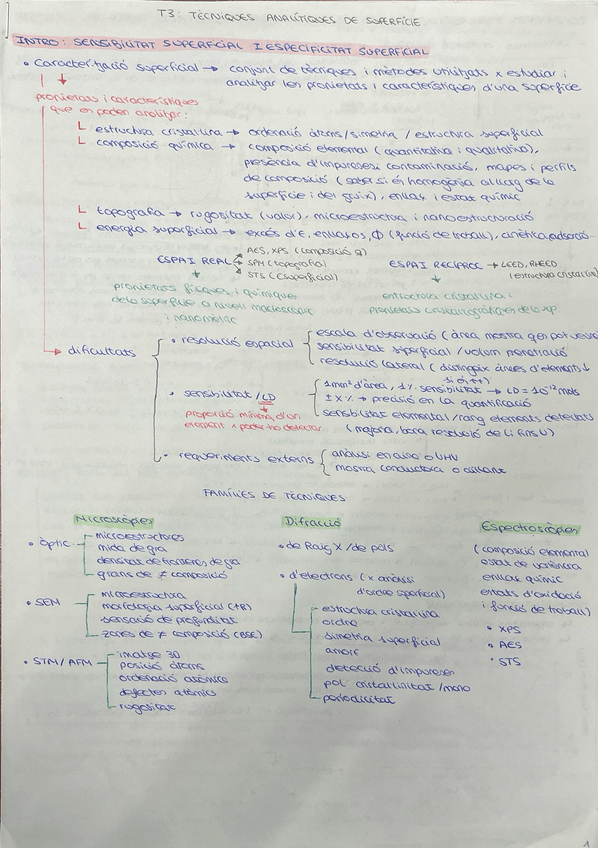 T3: TÈCNIQUES ANALÍTIQUES DE SUPERFÍCIE
INTRO: SENSIBILITAT SUPERFICIAL I ESPECIFICITAT SUPERFICIAL
• Caracterització superficial → conjunt de tècniques i mètodes utilitzats x estudiar i
analitzar les propietats i característiques d'una superfície
propietats i característiques
que es poden analitzar:
estructura cristal·lina → ordenació àtoms/simetria / estructura superficial
composició química → composició elemental (quantitativa i qualitativa),
presència d'impureses i contaminació, mapes i perfils
de composició (saber si és homogènia al llarg de la
superfície i del gruix), enllaç i estat químic
topografia → rugositat (valor), microestructura i nanoestructuració
energia superficial → excés d'E, enllaços, Φ (funció de treball), cinètica, adsorció...
ESPAI REAL
AES, XPS (composició q)
SPM (topografia)
STS (E superficial)
ESPAI RECÍPROC → LEED, RHEED
(estructura cristal·lina)
propietats físiques i químiques
de la superfície a nivell macroscòpic
i nanomètric
estructura cristal·lina i
propietats cristal·logràfiques de la sup
dificultats
• resolució espacial
escala d'observació (àrea mostra que pot veure
sensibilitat superficial / volum penetració
resolució lateral (distingir àrees d'elements ↓
• sensibilitat / LD
proporció mínima d'un
element x poder-ho detectar
1mm² d'àrea, 1% sensibilitat → LD = 10⁻¹² mols
± x % → precisió en la quantificació
sensibilitat elemental / rang elements detectats
(majoria, bona resolució de Li fins U)
• requeriments externs
anàlisi en aire o UHV
mostra conductora o aïllant
FAMÍLIES DE TÈCNIQUES
Microscòpies
• òptic
microestructures
mida de gra
densitat de fronteres de gra
grans de ≠ composició
• SEM
microestructura
morfologia superficial (+R)
sensació de profunditat
zones de ≠ composició (BSE)
• STM / AFM
imatge 3D
posició àtoms
ordenació atòmica
defectes atòmics
rugositat
Difracció
• de Raig X / de pols
• d'electrons (x anàlisi
d'ordre superficial)
estructura cristal·lina
ordre
simetria superficial
amorf
detecció d'impureses
pol. cristal·linitat / mono
periodicitat
Espectroscòpies
(composició elemental
estat de valència
enllaç químic
estats d'oxidació
i funció de treball)
• XPS
• AES
• STS
1